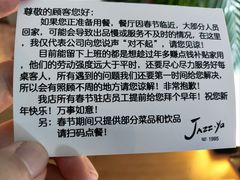 尊敬的顾客您好:
如果您正准备用餐，餐厅因春节临近，大部分人员
回家，可能会导致出品慢或服务不及时的情况，在这里
，我仅代表公司向您说声“对不起”，请您见谅！
目前能留下上班的都是想趁过年多赚点钱补贴家用
他们的劳动强度远大于平时，还要尽心尽力服务好每
桌客人，所有遇到的问题我们会第一时间给您解决，
所以会有照顾不周的地方请您谅解！非常抱歉！
我店所有春节驻店员工提前给您拜个早年！祝您新
年快乐！万事如意！
另：春节期间只提供部分菜品和饮品
请扫码点餐！
Jazz-Ya
1995